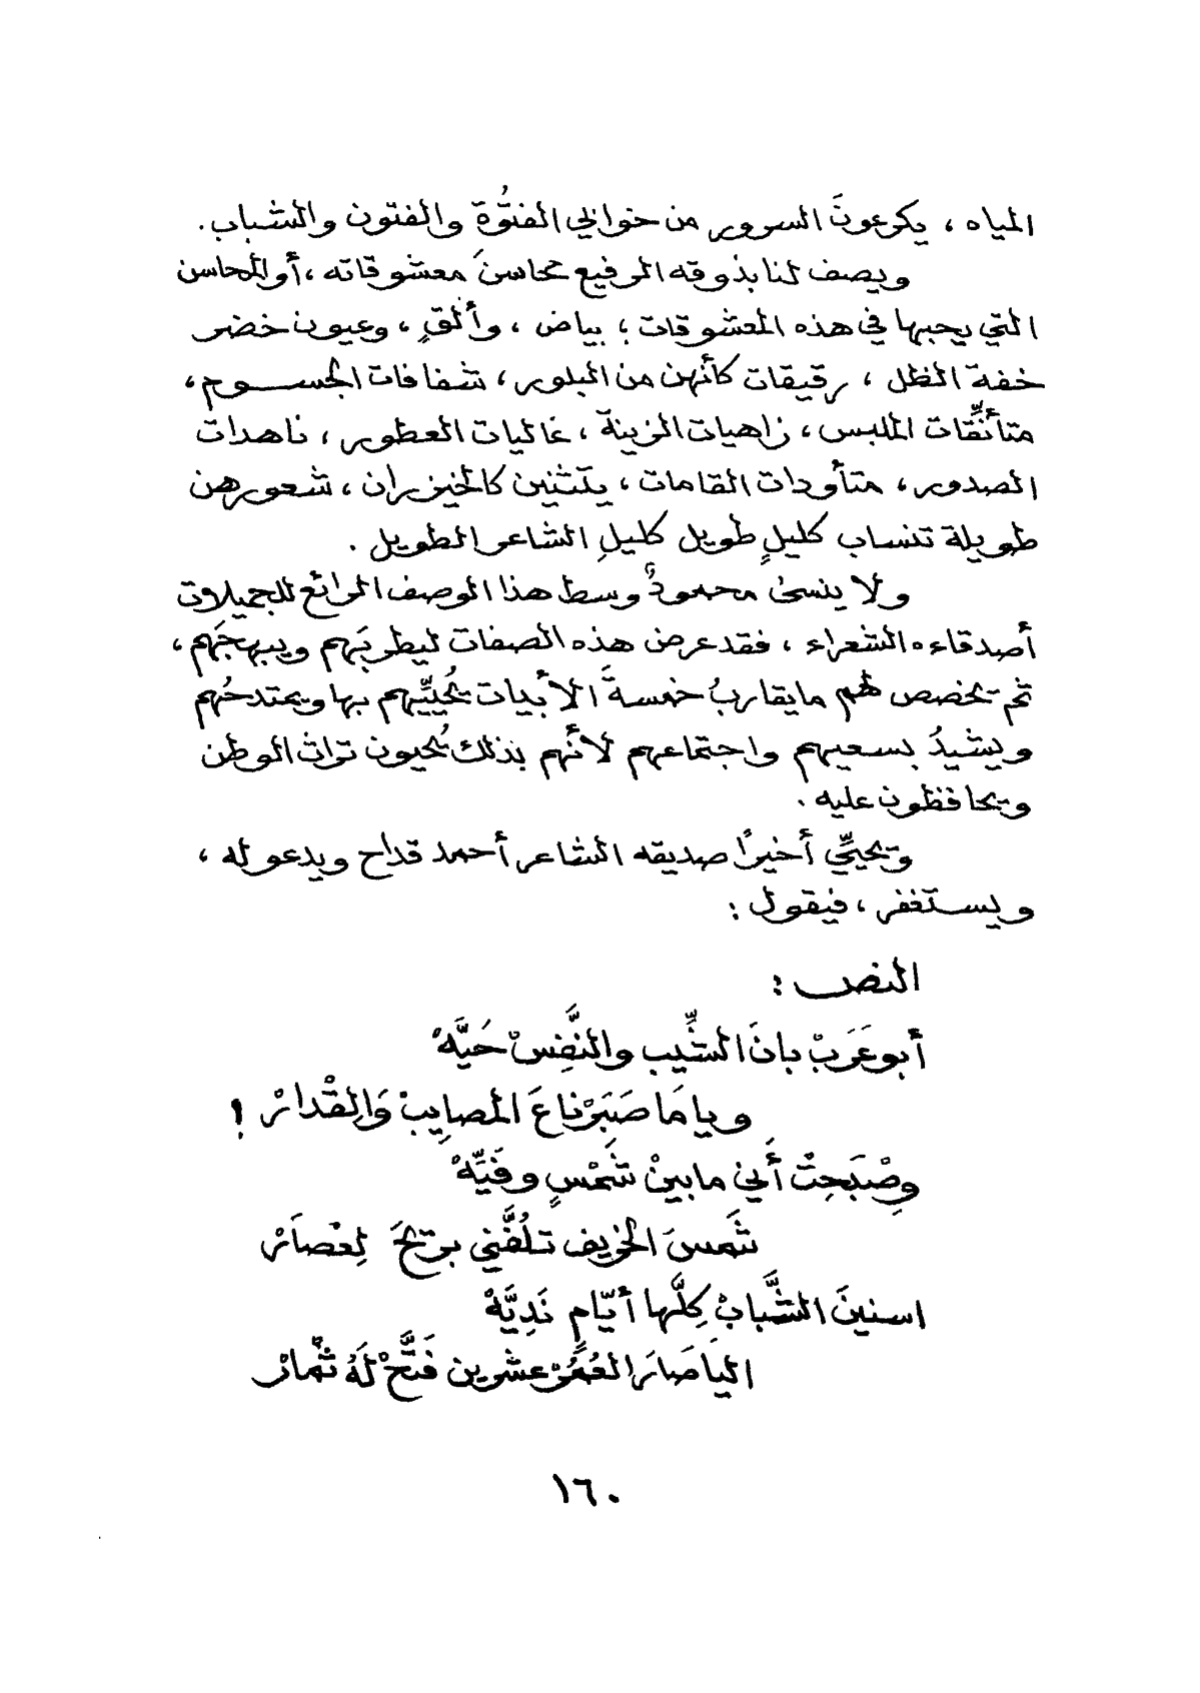 المياه ، يكرعونَ السرور من خوابي الفتوُّة والفتون والشباب .
ويصف لنا بذوقه الرفيع محاسنَ معشوقاته ، أو المحاسن
التي يحبها في هذه المعشوقات ؛ بياض ، وألقٍ ، وعيون خضر
خفة الظل ، رقيقات كأنهن من البلور ، شفافات الجسوم ،
متأنِّقات الملبس ، زاهيات الزينة ، غاليات العطور ، ناهدات
الصدور ، متأودات القامات ، يتثنين كالخيزران ، شعورهن
طويلة تنساب كليلٍ طويل كليلِ الشاعر الطويل .
ولا ينسىٰ محمودٌ وسط هذا الوصف الرائع للجميلات
أصدقاءه الشعراء ، فقد عرض هذه الصفات ليطربَهم ويبهجَهم ،
ثم تخصص لهم ما يقاربُ خمسةَ الأبيات يُحيِّيهم بها ويمتدحُهم
ويشيدُ بسعيهم واجتماعهم لأنَّهم بذلك يُحيون تراث الوطن
ويحافظون عليه .
ويحيِّي أخيرًا صديقه الشاعر أحمد قداح ويدعو له ،
ويستغفر ، فيقول :
النص :
أبو عَرَبْ بانَ الشِّيب والنَّفِسْ حَيَّهْ
ويا مَا صَبَرْنا عَ المصايِبْ وَالِقْدارْ !
وِصْبَحِتْ أَني ما بينْ شَمْسٍ وفَيِّهْ
شَمسَ الخريف تلُفَّني بريحَ لِعْصَارْ
اسنينَ الشَّبابْ كِلَّها أيّامٍ نَدِيَّهْ
اليا صَارَ العُمُرْ عشرين فَتَّحْ لَهُ ثْمارْ
١٦٠